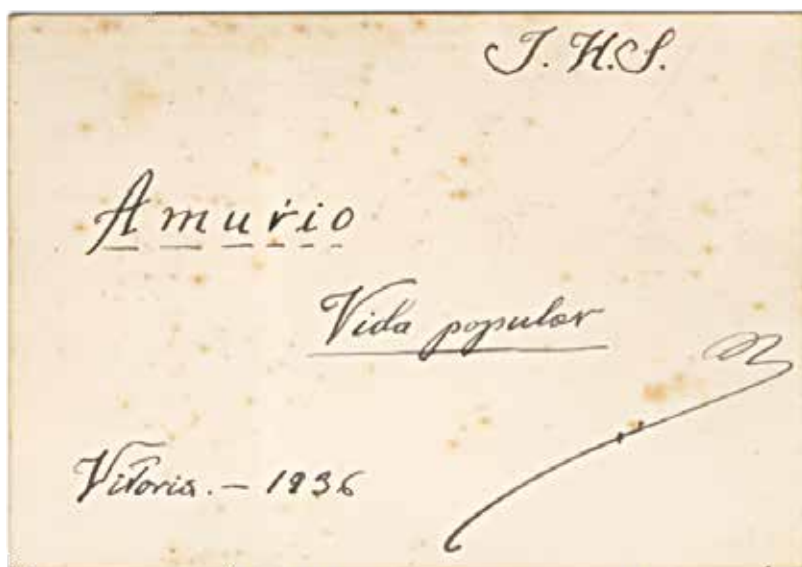 J. H. S.
Amurio
Vida popular
Vitoria. — 1936